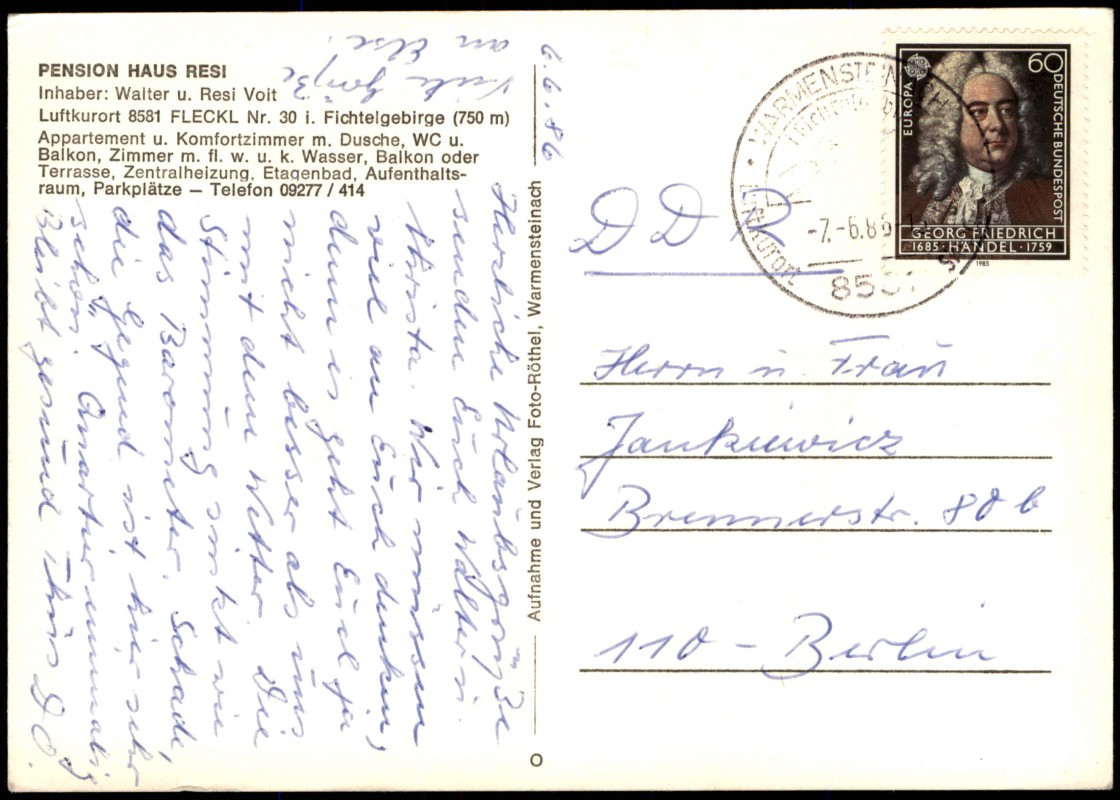 PENSION HAUS RESI
Inhaber: Walter u. Resi Voit
Luftkurort 8581 FLECKL Nr. 30 i. Fichtelgebirge (750 m)
Appartement u. Komfortzimmer m. Dusche, WC u.
Balkon, Zimmer m. fl. w. u. k. Wasser, Balkon oder
Terrasse, Zentralheizung, Etagenbad, Aufenthalts-
raum, Parkplätze — Telefon 09277 / 414
6.6.86
Herzliche Urlaubsgrüße
senden Euch Walter u.
Christa. Wir müssen
viel an Euch denken,
denn es geht Euch ja
nicht besser als uns
mit dem Wetter. Die
Stimmung sinkt wie
das Barometer. Schade,
die Gegend ist hier sehr
schön.
Bleibt gesund
Viele Grüße
an Else.
Aufnahme und Verlag Foto-Röthel, Warmensteinach
O
WARMENSTEINACH
-7.-6.86
Luftkurort
EUROPA
60
DEUTSCHE BUNDESPOST
GEORG FRIEDRICH
1685 · HÄNDEL · 1759
1985
DDR
Herrn u. Frau
Jankiewicz
Brennerstr. 80 b
110 - Berlin